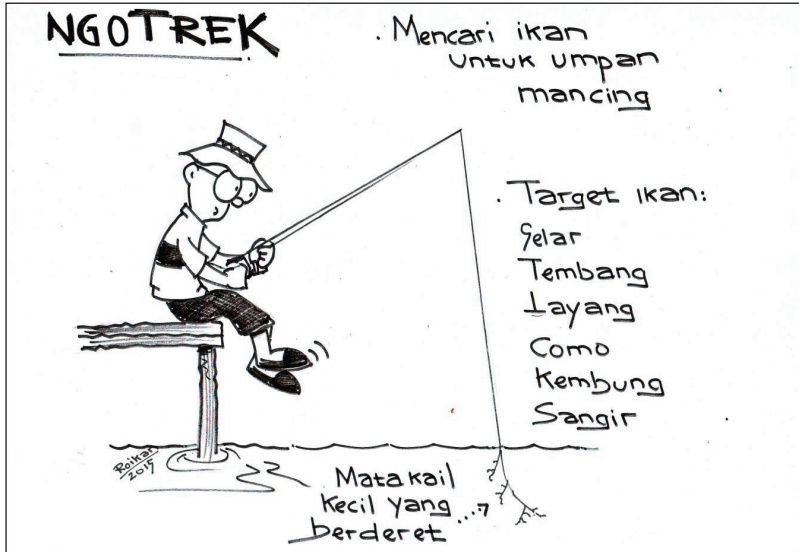 NGOTREK
. Mencari ikan
untuk umpan
mancing
. Target ikan:
Selar
Tembang
Layang
Como
Kembung
Sangir
Roikan
2015
Mata kail
kecil yang
berderet ....?